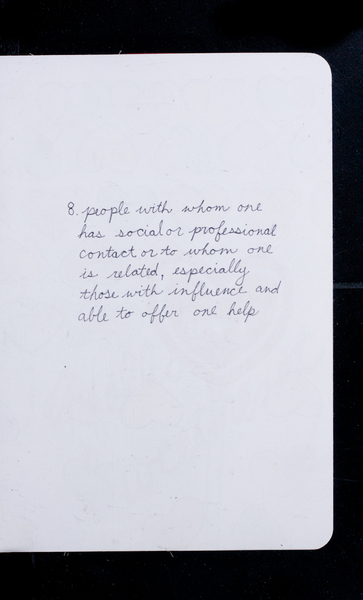 8. people with whom one
has social or professional
contact or to whom one
is related, especially
those with influence and
able to offer one help